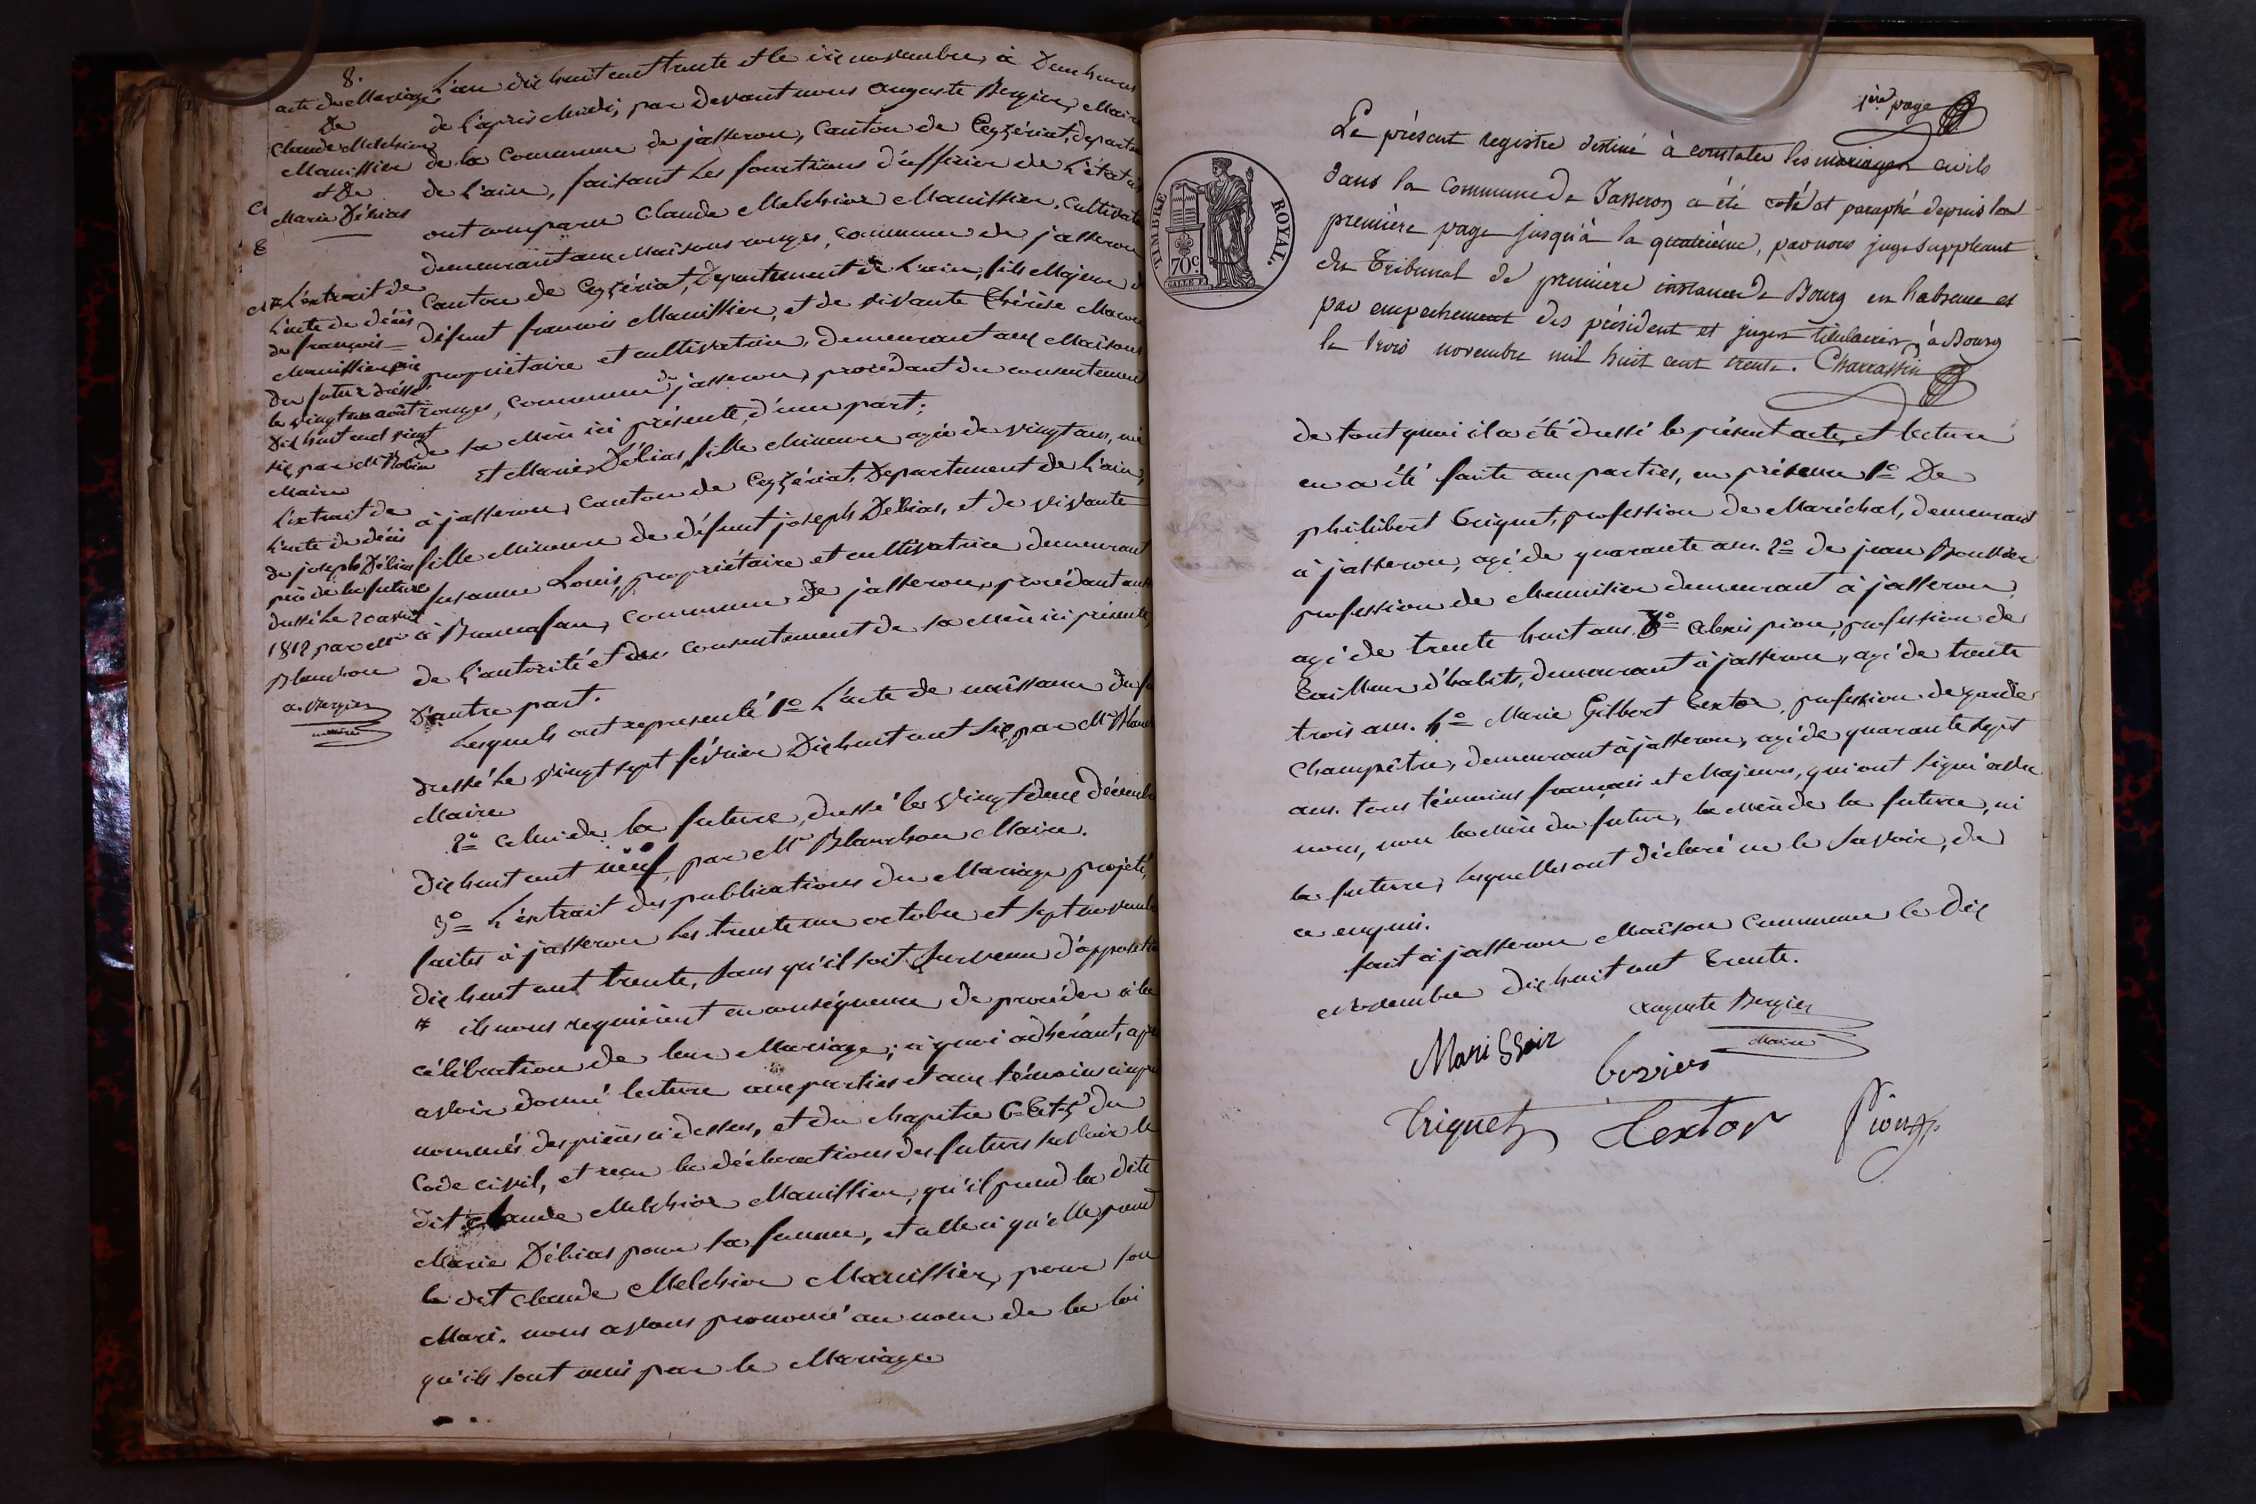 8.
acte de Mariage
De
Claude Melchior
Manissier
et De
Marie Débias
L'an dix huit cent trente et le dix novembre, à Deux heures
de l'après Midi, par devant nous Auguste Bergier, Maire
de la Commune de jasseron, Canton de Ceyzériat, departem
de L'ain, faisant Les fonctions d'officier de L'état ci
ont comparu Claude Melchior Manissier, Cultivate
demeurant aux Maisons rouges, commune de jasseron
Canton de Ceyzériat, Département de L'ain, fils Majeur d
défunt francois Manissier, et de vivante Thérèse
propriétaire et cultivatrice, demeurant aux Maisons
rouges, commune de jasseron, procédant du consentement
de sa Mère ici présente, d'une part;
Et Marie Débias, fille Mineure agée de vingt ans, née
à jasseron, canton de Ceyzériat, Departement de L'ain,
fille Mineure de défunt joseph Débias, et de vivante
susanne Louis, propriétaire et cultivatrice demeurant
à commune de jasseron, procédant
de L'autorité et du consentement de sa Mère ici présente,
D'autre part.
Lesquels ont representé 1º L'acte de naissance du fu
dressé Le vingt sept février Dix huit cent six, par Mr Blanc
Maire
2º Celui de la future, dressé les vingt deux décemb
dix huit cent neuf, par Mr Blanchon Maire.
3º L'extrait des publications du Mariage projeté,
faites à jasseron Les trente un octobre et sept novemb
dix huit cent trente, sans qu'il soit survenu d'opposit
# ils nous requièrent en conséquence de procéder à la
célébration de leur Mariage; à quoi adhérant, apr
avoir donné lecture aux parties et aux témoins
nommés des pièces ci dessus, et du chapitre 6 du
Code civil, et reçu la déclarations des futurs savoir le
dit Claude Melchior Manissier, qu'il prend la dite
Marie Débias pour sa femme, et celle ci qu'elle prend
le dit Claude Melchior Manissier, pour son
Mari. nous avons prononcé au nom de la loi
qu'ils sont unis par le Mariage
# L'extrait de
L'acte de décès
de françois
Manissier père
du futur dressé
le vingt un août
Dix huit cent vingt
six par Mr Robin
Maire
L'extrait de
L'acte de décès
de joseph Débias
père de la future
dressé Le 20 avril
1812 par Mr
Blanchon
A. Bergier
maire
1ère page
Le présent registre destiné à constater les mariages civils
dans la Commune de Jasseron a été coté et paraphé depuis la
première page jusqu'à la quatrième, par nous juge suppléant
du Tribunal de première instance de Bourg en l'absence et
par empechement des président et juges titulaires, à Bourg
le trois novembre mil huit cent trente. Charrassin
TIMBRE ROYAL.
70c
de tout quoi il a été dressé le présent acte, et lecture
en a été faite aux parties, en présence 1º De
philibert Triquet, profession de Maréchal, demeurant
à jasseron, agé de quarante ans. 2º de jean
profession de Menuisier demeurant à jasseron,
agé de trente huit ans. 3º Alexis pioux, profession de
tailleur d'habits, demeurant à jasseron, agé de trente
trois ans. 4º Marie Gilbert Textor, profession de garde
champêtre, demeurant à jasseron, agé de quarante sept
ans. tous témoins français et Majeurs, qui ont signé avec
nous, non la Mère du futur, la Mère de la future, ni
la future, lesquelles ont déclaré ne le savoir, de
ce enquis.
fait à jasseron Maison Commune le Dix
novembre Dix huit cent trente.
Auguste Bergier
Maire
Manissier
Triquet
Textor
Pioux